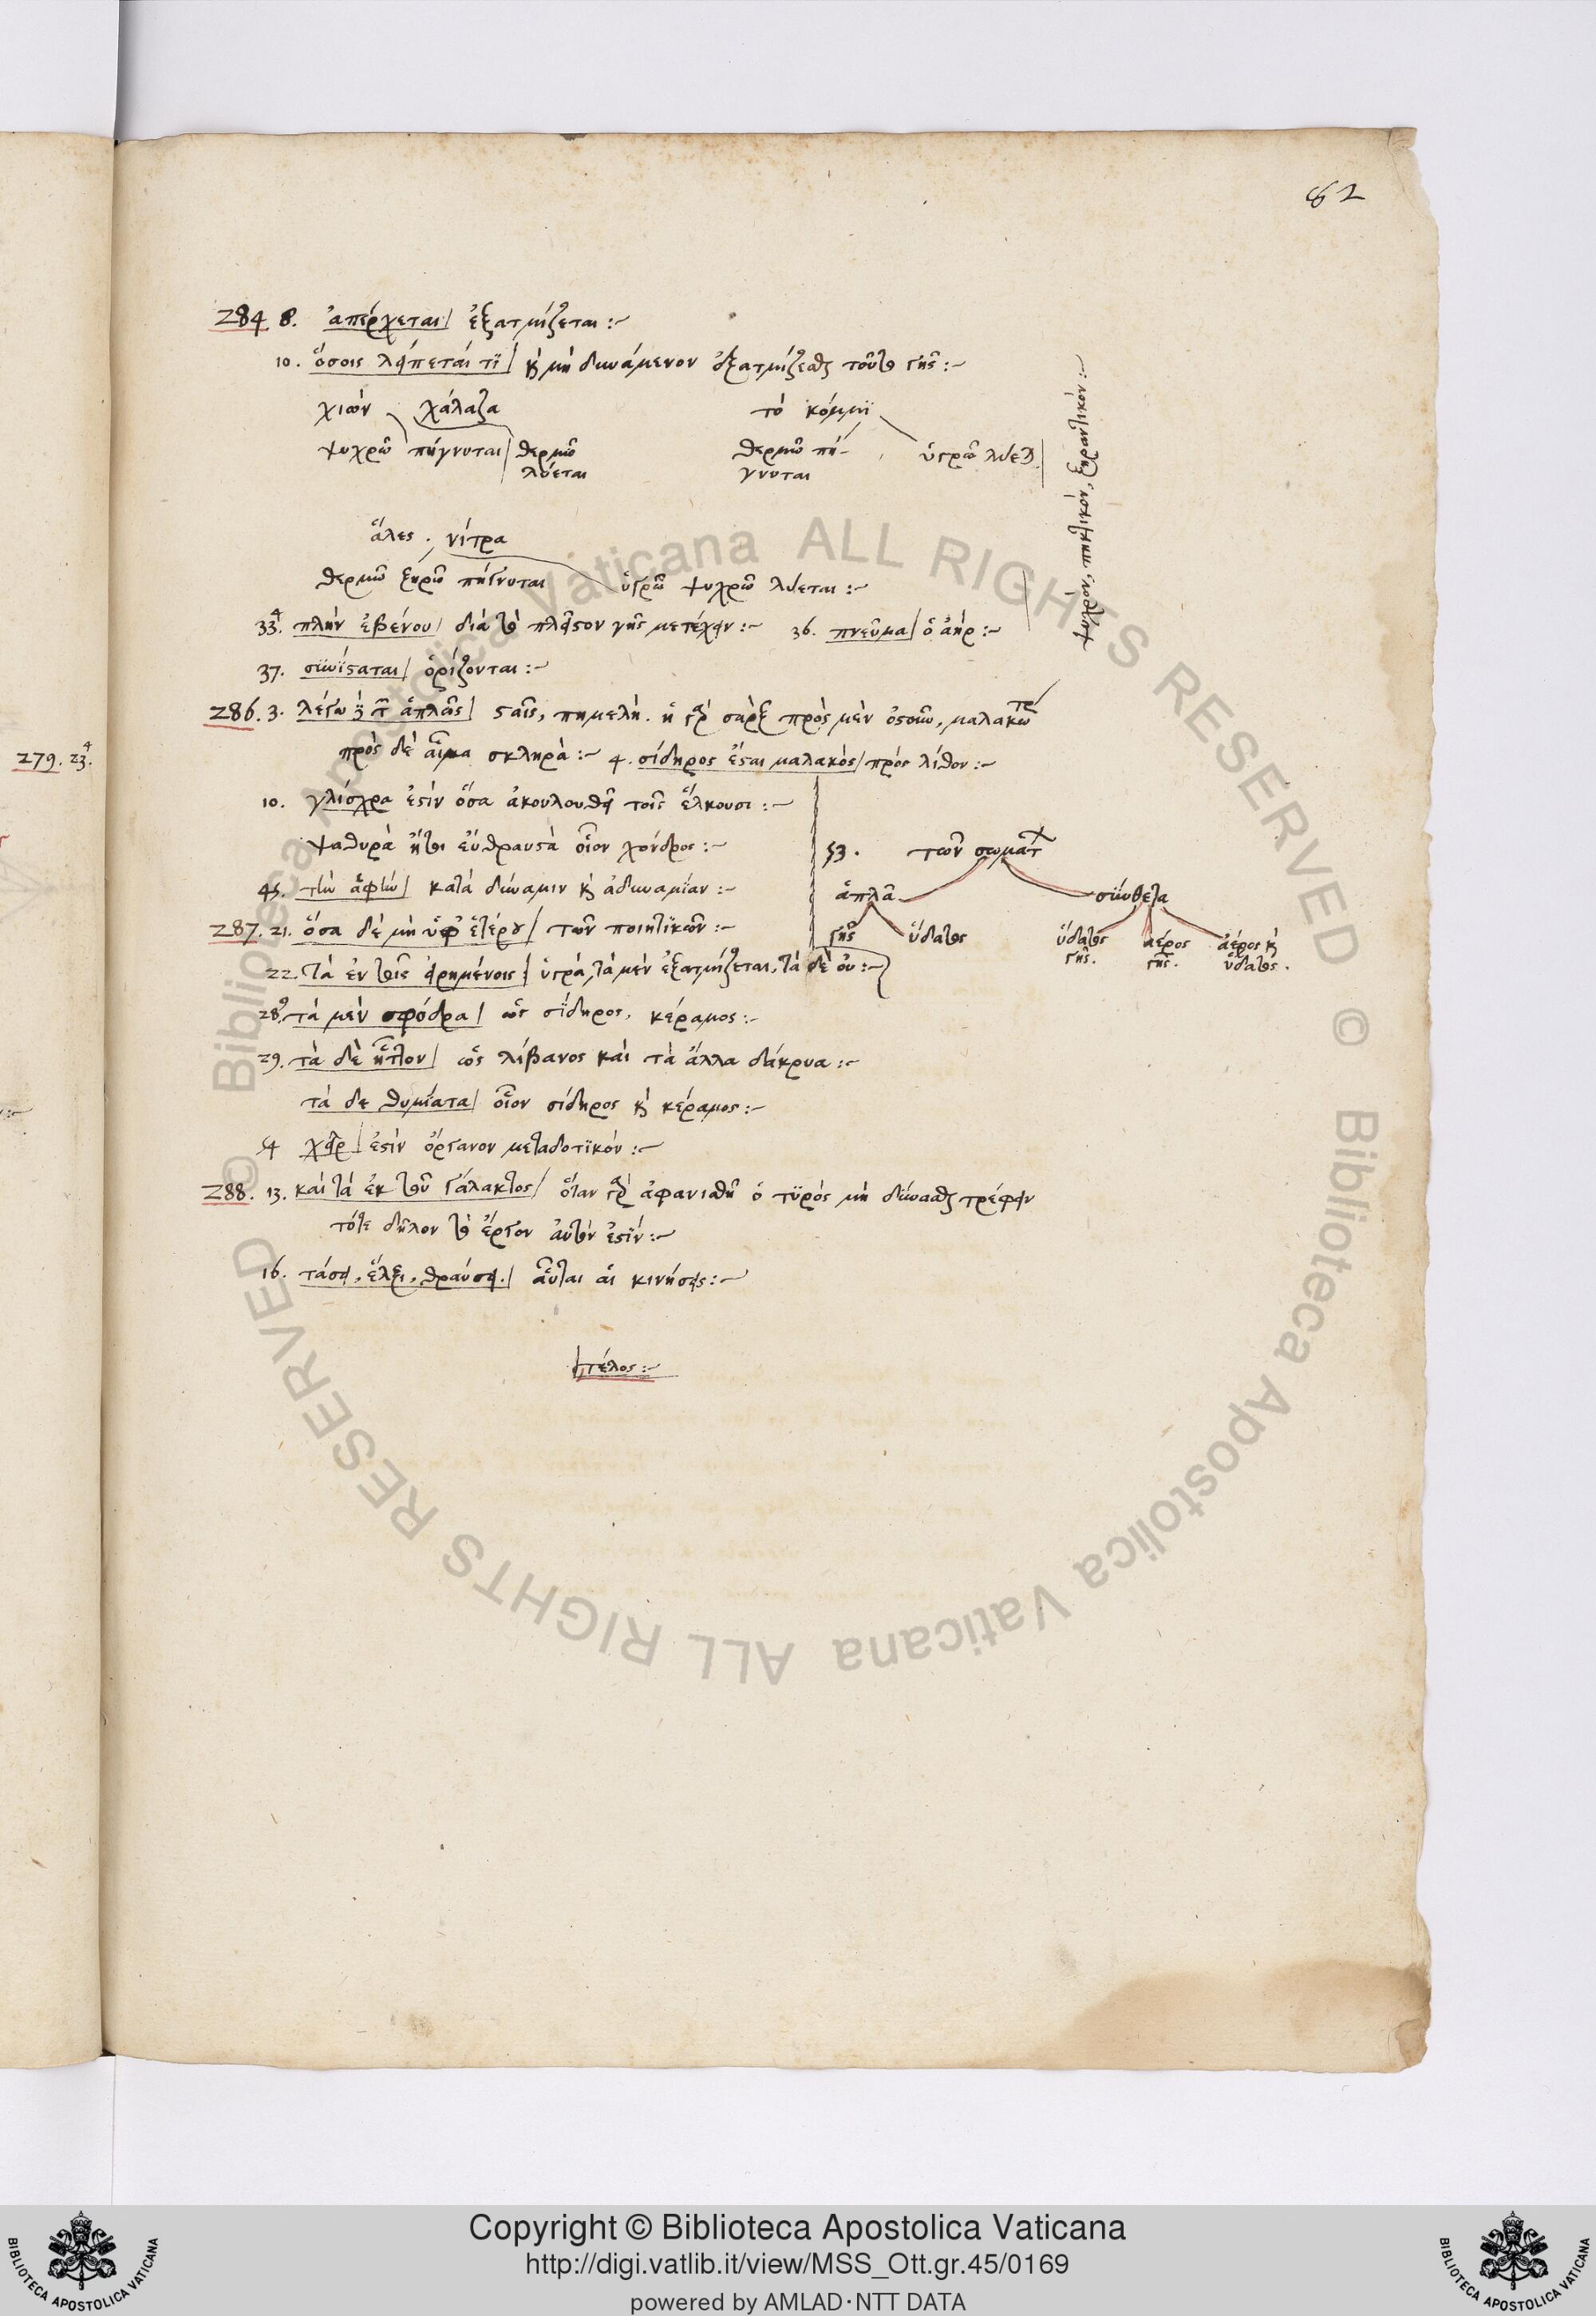 82
284 8. ἀπέρχεται/ ἐξατμίζεται :~
10. ὅσοις λείπεταί τϊ/ καὶ μὴ δυνάμενον ἐξατμίζεσθαι τοῦτο γῆς :~
χιών χάλαζα τὸ κόμμϊ
ψυχρῶ πήγνυται/ θερμῶ θερμῶ πή- ὑγρῶ λύεται
λύεται γνυται
ψυχρόν, πηκτικόν, ξηραντικόν :~
ἅλες . νίτρα
θερμῶ ξηρῶ πήγνυται ὑγρῶ ψυχρῶ λύεται :~
33. πλὴν ἐβένου/ διὰ τὸ πλεῖστον γῆς μετέχειν :~ 36. πνεῦμα/ ὁ ἀήρ :~
37. συνίσταται/ ὁρίζονται :~
279. 23.
286. 3. ἁπλῶς/ σταῖς, πημελή. ἡ γὰρ σὰρξ πρὸς μὲν ὀστοῦν,
πρὸς δὲ αἷμα σκληρά :~ 4. σίδηρος ἔσται μαλακὸς/ πρὸς λίθον :~
10. γλίσχρα ἐστὶν ὅσα ἀκουλουθεῖ τοῖς ἕλκουσι :~
ψαθυρὰ ἤτοι εὔθραυστα οἷον χόνδρος :~
53. τῶν σωμάτων
45. τὴν ἁφὴν/ κατὰ δύναμιν καὶ ἀδυναμίαν :~
ἁπλᾶ σύνθετα
287. 21. ὅσα δὲ μὴ ὑφ' ἑτέρου/ τῶν ποιητϊκῶν :~
γῆς ὕδατος ὕδατος γῆς. ἀέρος γῆς. ἀέρος καὶ ὕδατος.
22. τὰ ἐν τοῖς εἰρημένοις/ ὑγρά, τὰ μὲν ἐξατμίζεται, τὰ δὲ οὐ :~
28. τὰ μὲν σφόδρα/ ὡς σίδηρος, κέραμος :~
29. τὰ δὲ ἧττον/ ὡς λίβανος καὶ τὰ ἄλλα δάκρυα :~
τὰ δε θυμίατα/ οἷον σίδηρος καὶ κέραμος :~
54 χεὶρ/ ἐστὶν ὄργανον μεταδοτϊκόν :~
288. 13. καὶ τὰ ἐκ τοῦ γάλακτος/ ὅταν γὰρ ἀφανισθῆ ὁ τϋρὸς μὴ δύνασθαι τρέφειν
τότε δῆλον τὸ ἔργον αὐτῶν ἐστίν :~
16. τάσει, ἕλξει, θραύσει./ αὗται αἱ κινήσεις :~
τέλος :~
Copyright © Biblioteca Apostolica Vaticana
http://digi.vatlib.it/view/MSS_Ott.gr.45/0169
powered by AMLAD·NTT DATA
© Biblioteca Apostolica Vaticana ALL RIGHTS RESERVED
© Biblioteca Apostolica Vaticana ALL RIGHTS RESERVED
BIBLIOTECA APOSTOLICA VATICANA
BIBLIOTECA APOSTOLICA VATICANA